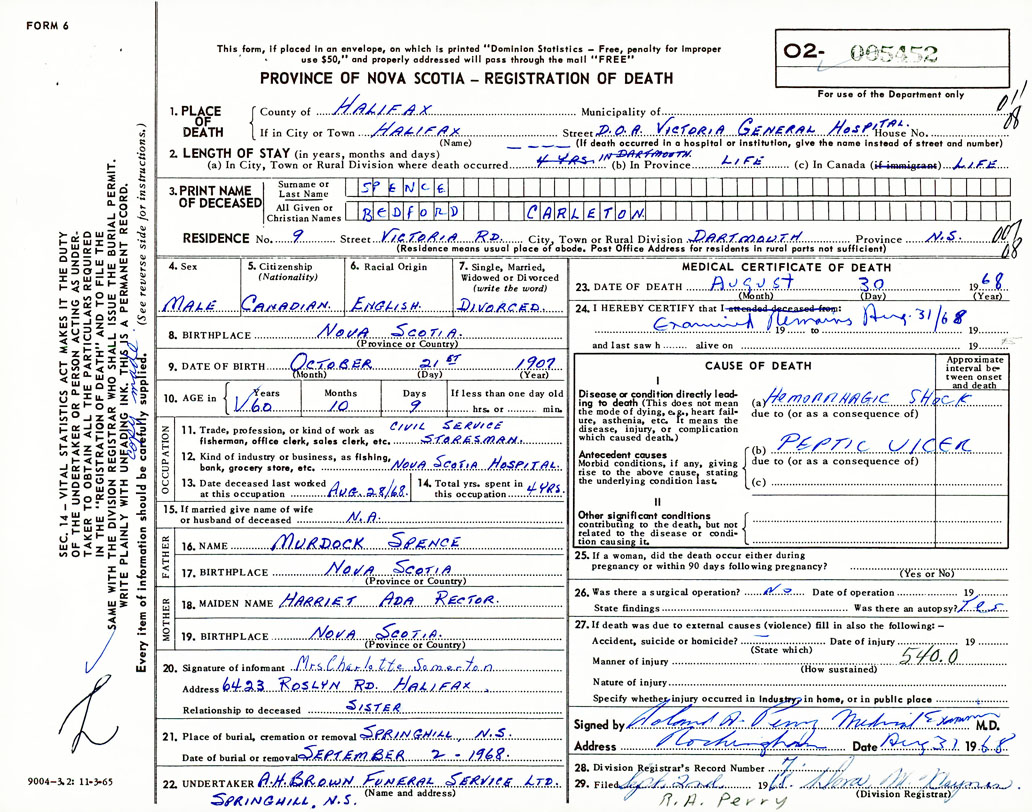 FORM 6
This form, if placed in an envelope, on which is printed "Dominion Statistics – Free, penalty for improper
use $50," and properly addressed will pass through the mail "FREE"
PROVINCE OF NOVA SCOTIA – REGISTRATION OF DEATH
O2- 005452
For use of the Department only
011
08
1. PLACE OF DEATH
County of HALIFAX Municipality of
If in City or Town HALIFAX Street D.O.A. VICTORIA GENERAL HOSPITAL. House No.
(Name) (If death occurred in a hospital or institution, give the name instead of street and number)
2. LENGTH OF STAY (in years, months and days)
(a) In City, Town or Rural Division where death occurred 4 YRS. IN DARTMOUTH (b) In Province LIFE (c) In Canada (if immigrant) LIFE
3. PRINT NAME OF DECEASED
Surname or Last Name SPENCE
All Given or Christian Names BEDFORD CARLETON
RESIDENCE No. 9 Street VICTORIA RD. City, Town or Rural Division DARTMOUTH Province N.S.
(Residence means usual place of abode. Post Office Address for residents in rural parts not sufficient)
4. Sex MALE
5. Citizenship (Nationality) CANADIAN.
6. Racial Origin ENGLISH.
7. Single, Married, Widowed or Divorced (write the word) DIVORCED.
8. BIRTHPLACE NOVA SCOTIA.
(Province or Country)
9. DATE OF BIRTH OCTOBER 21ST 1907
(Month) (Day) (Year)
10. AGE in Years 60 Months 10 Days 9 If less than one day old hrs. or min.
OCCUPATION
11. Trade, profession, or kind of work as fisherman, office clerk, sales clerk, etc. CIVIL SERVICE STORESMAN.
12. Kind of industry or business, as fishing, bank, grocery store, etc. NOVA SCOTIA HOSPITAL.
13. Date deceased last worked at this occupation AUG. 28/68.
14. Total yrs. spent in this occupation 4 YRS.
15. If married give name of wife or husband of deceased N.A.
FATHER
16. NAME MURDOCK SPENCE
17. BIRTHPLACE NOVA SCOTIA
(Province or Country)
MOTHER
18. MAIDEN NAME HARRIET ADA RECTOR.
19. BIRTHPLACE NOVA SCOTIA.
(Province or Country)
20. Signature of informant Mrs Charlotte Somerton
Address 6423 ROSLYN RD. HALIFAX.
Relationship to deceased SISTER
21. Place of burial, cremation or removal SPRINGHILL, N.S.
Date of burial or removal SEPTEMBER 2 - 1968.
22. UNDERTAKER A.H. BROWN FUNERAL SERVICE LTD.
(Name and address)
SPRINGHILL, N.S.
MEDICAL CERTIFICATE OF DEATH
23. DATE OF DEATH AUGUST 30 1968
(Month) (Day) (Year)
24. I HEREBY CERTIFY that I attended deceased from:
Examined Remains Aug. 31/68
19 to 19
and last saw h alive on 19
CAUSE OF DEATH
Approximate interval between onset and death
I
Disease or condition directly leading to death (This does not mean the mode of dying, e.g., heart failure, asthenia, etc. It means the disease, injury, or complication which caused death.)
(a) HEMORRHAGIC SHOCK
due to (or as a consequence of)
Antecedent causes
Morbid conditions, if any, giving rise to the above cause, stating the underlying condition last.
(b) PEPTIC ULCER
due to (or as a consequence of)
(c)
II
Other significant conditions
contributing to the death, but not related to the disease or condition causing it.
25. If a woman, did the death occur either during pregnancy or within 90 days following pregnancy?
(Yes or No)
26. Was there a surgical operation? No Date of operation 19
State findings Was there an autopsy? Yes
27. If death was due to external causes (violence) fill in also the following: –
Accident, suicide or homicide? Date of injury 19
(State which)
Manner of injury 540.0
(How sustained)
Nature of injury
Specify whether injury occurred in Industry, in home, or in public place
Signed by Roland A. Perry Medical Examiner M.D.
Address Rockingham Date Aug 31 1968
28. Division Registrar's Record Number
29. Filed Sept. 2nd 19
(Division Registrar)
R.A. Perry
SEC. 14 – VITAL STATISTICS ACT MAKES IT THE DUTY
OF THE UNDERTAKER OR PERSON ACTING AS UNDER-
TAKER TO OBTAIN ALL THE PARTICULARS REQUIRED
IN THE "REGISTRATION OF DEATH" AND TO FILE THE
SAME WITH THE DIVISION REGISTRAR WHO SHALL ISSUE THE BURIAL PERMIT.
WRITE PLAINLY WITH UNFADING INK. THIS IS A PERMANENT RECORD.
copy made
Every item of information should be carefully supplied. (See reverse side for instructions.)
9004-3.2: 11-3-65